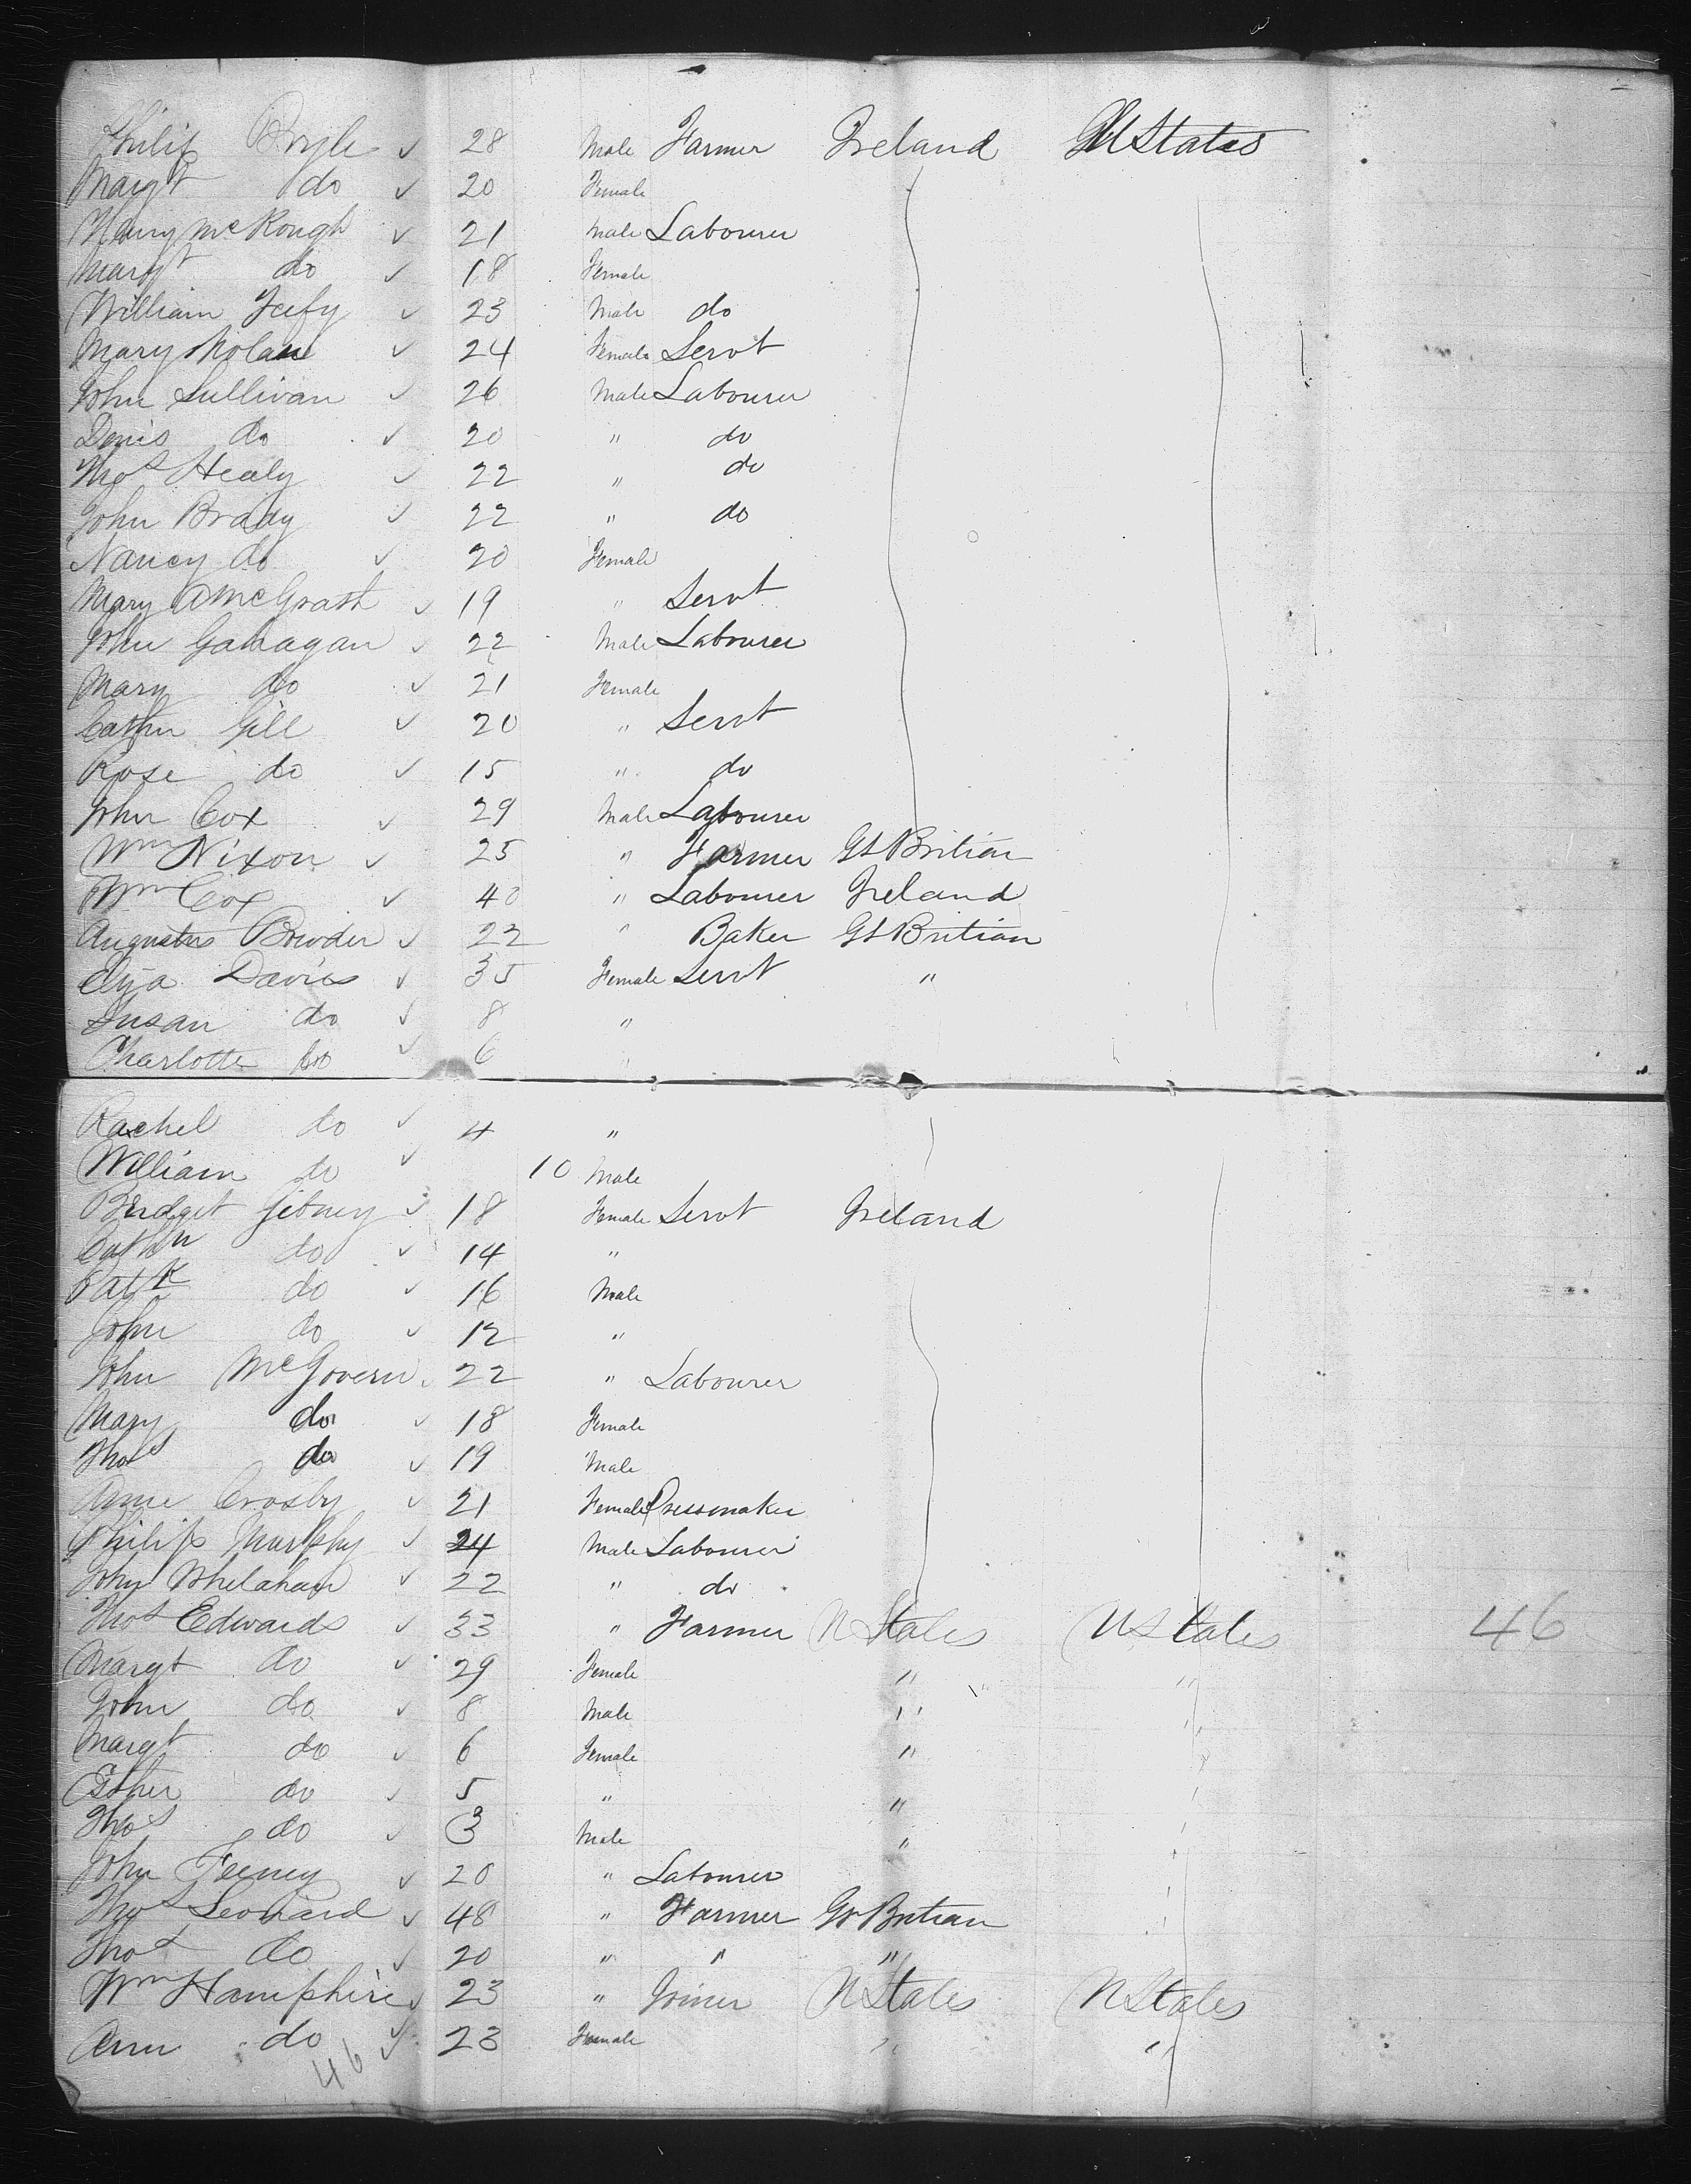 Philip Boyle ✓ 28 Male Farmer Ireland U States
Margt do ✓ 20 Female
Henry McKough ✓ 21 Male Labourer
Margt do ✓ 18 Female
William Feefy ✓ 23 Male do
Mary Nolan ✓ 24 Female Servt
John Sullivan ✓ 26 Male Labourer
Denis do ✓ 20 " do
Thos Healy ✓ 22 " do
John Brady ✓ 22 " do
Nancy do ✓ 20 Female
Mary A McGrath ✓ 19 " Servt
John Gahagan ✓ 22 Male Labourer
Mary do ✓ 21 Female
Cathn Gill ✓ 20 " Servt
Rose do ✓ 15 " do
John Cox ✓ 29 Male Labourer
Wm Nixon ✓ 25 " Farmer Gt Britian
Wm Cox ✓ 40 " Labourer Ireland
Augustus Bowder ✓ 22 " Baker Gt Britian
Eliza Davies ✓ 35 Female Servt "
Susan do ✓ 8 "
Charlotte do ✓ 6 "
Rachel do ✓ 4 "
William do ✓ 10 Male
Bridget Gibney ✓ 18 Female Servt Ireland
Cathn do ✓ 14 "
Patk do ✓ 16 Male
John do ✓ 12 "
John McGovern ✓ 22 " Labourer
Mary do ✓ 18 Female
Thos do ✓ 19 Male
Anne Crosby ✓ 21 Female Dressmaker
Philip Murphy ✓ 24 Male Labourer
John Whelahan ✓ 22 " do
Thos Edwards ✓ 33 " Farmer U States U States 46
Margt do ✓ 29 Female " "
John do ✓ 8 Male " "
Margt do ✓ 6 Female " "
Esther do ✓ 5 " " "
Thos do ✓ 3 Male " "
John Feeney ✓ 20 " Labourer "
Thos Leonard ✓ 48 " Farmer Gt Britian "
Thos do ✓ 20 " " "
Wm Hamphire ✓ 23 " Joiner U States U States
Ann do ✓ 23 Female " "
46